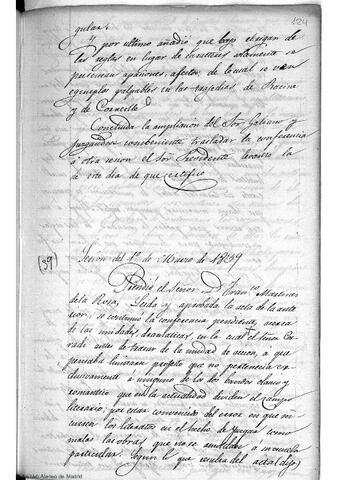 124
gulares
y por ultimo añadió que bajo el rigor de
las reglas en lugar de caracteres solamente se
pasiones, afectos, de lo cual se ven
egemplos palpables en las tragedias de Racine
y de Corneille
Concluida la ampliacion del Sor Galiano y
juzgandose conveniente trasladar la conferencia
á otra sesion el Sor Presidente levantó la
de este dia de que certifico
(39)
Sesion del 1º de Enero de 1839
Presidió el Señor D Franco Martinez
de la Rosa, Leida y aprobada la acta de la ante
rior, se continuó la conferencia pendiente acerca
de las unidades dramaticas, en la cual el Señor
antes de tratar de la unidad de accion, a que
pensaba limitarse protestó que no pertenecia ex
clusivamente a ninguno de los dos bandos clasico y
romantico que en la actualidad dividen el campo
literario, por estar convencido del error en que in
curren los literatos en el hecho de juzgar como
malas las obras, que no se amoldan á su escuela
particular. Segun lo que
Ateneo de Madrid